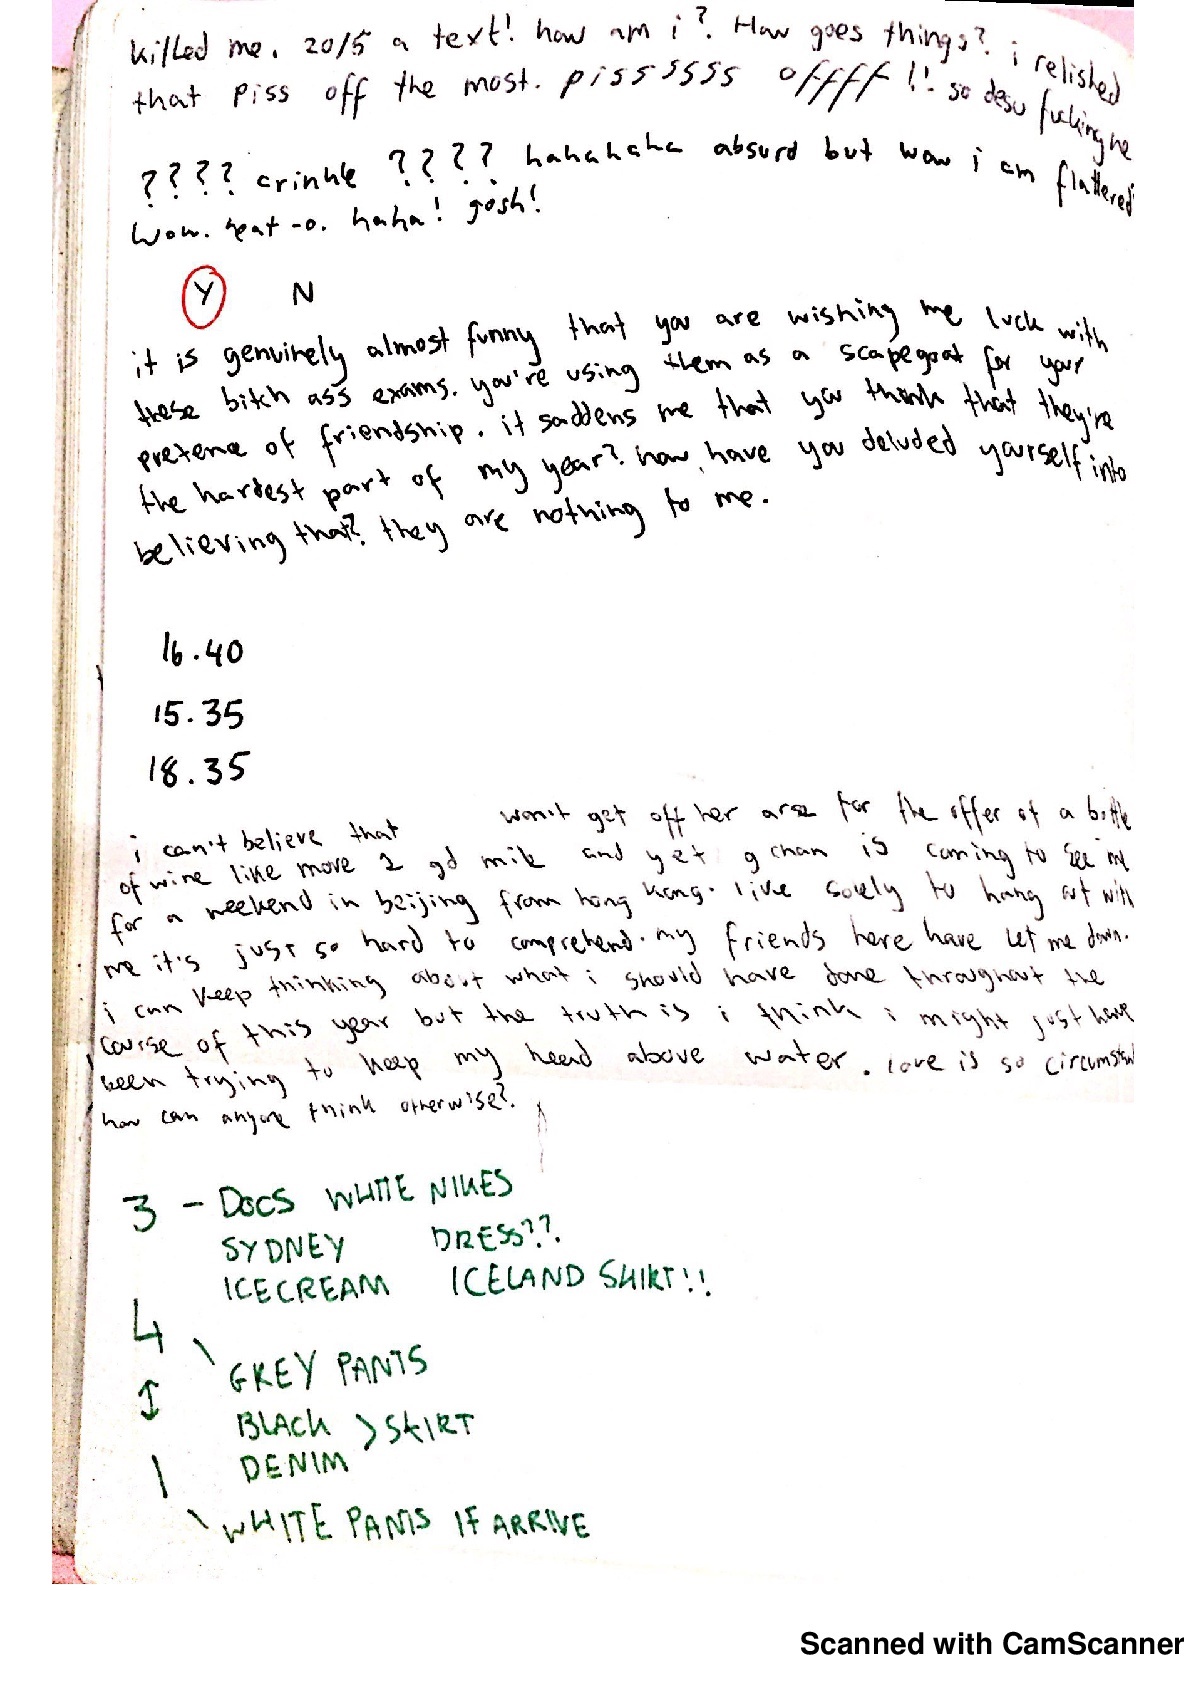 killed me. 20/5 a text! how am i? How goes things? i relished
that piss off the most. pissssss offfff!! so desu fucking ne
???? crinkle ???? hahahaha absurd but wow i am flattered
wow. neat-o. haha! gosh!
Y N
it is genuinely almost funny that you are wishing me luck with
these bitch ass exams. you're using them as a scapegoat for your
pretence of friendship. it saddens me that you think that they're
the hardest part of my year? how have you deluded yourself into
believing that? they are nothing to me.
16.40
15.35
18.35
i can't believe that won't get off her arse for the offer of a bottle
of wine like move 2 gd milk and yet g chan is coming to see me
for a weekend in beijing from hong kong. like solely to hang out with
me it's just so hard to comprehend. my friends here have let me down.
i can keep thinking about what i should have done throughout the
course of this year but the truth is i think i might just have
been trying to keep my head above water. love is so
how can anyone think otherwise?
3 - DOCS WHITE NIKES
SYDNEY DRESS??
ICECREAM ICELAND SHIRT!!
4
\ GREY PANTS
↕ BLACK > SKIRT
1 DENIM
\ WHITE PANTS IF ARRIVE
Scanned with CamScanner